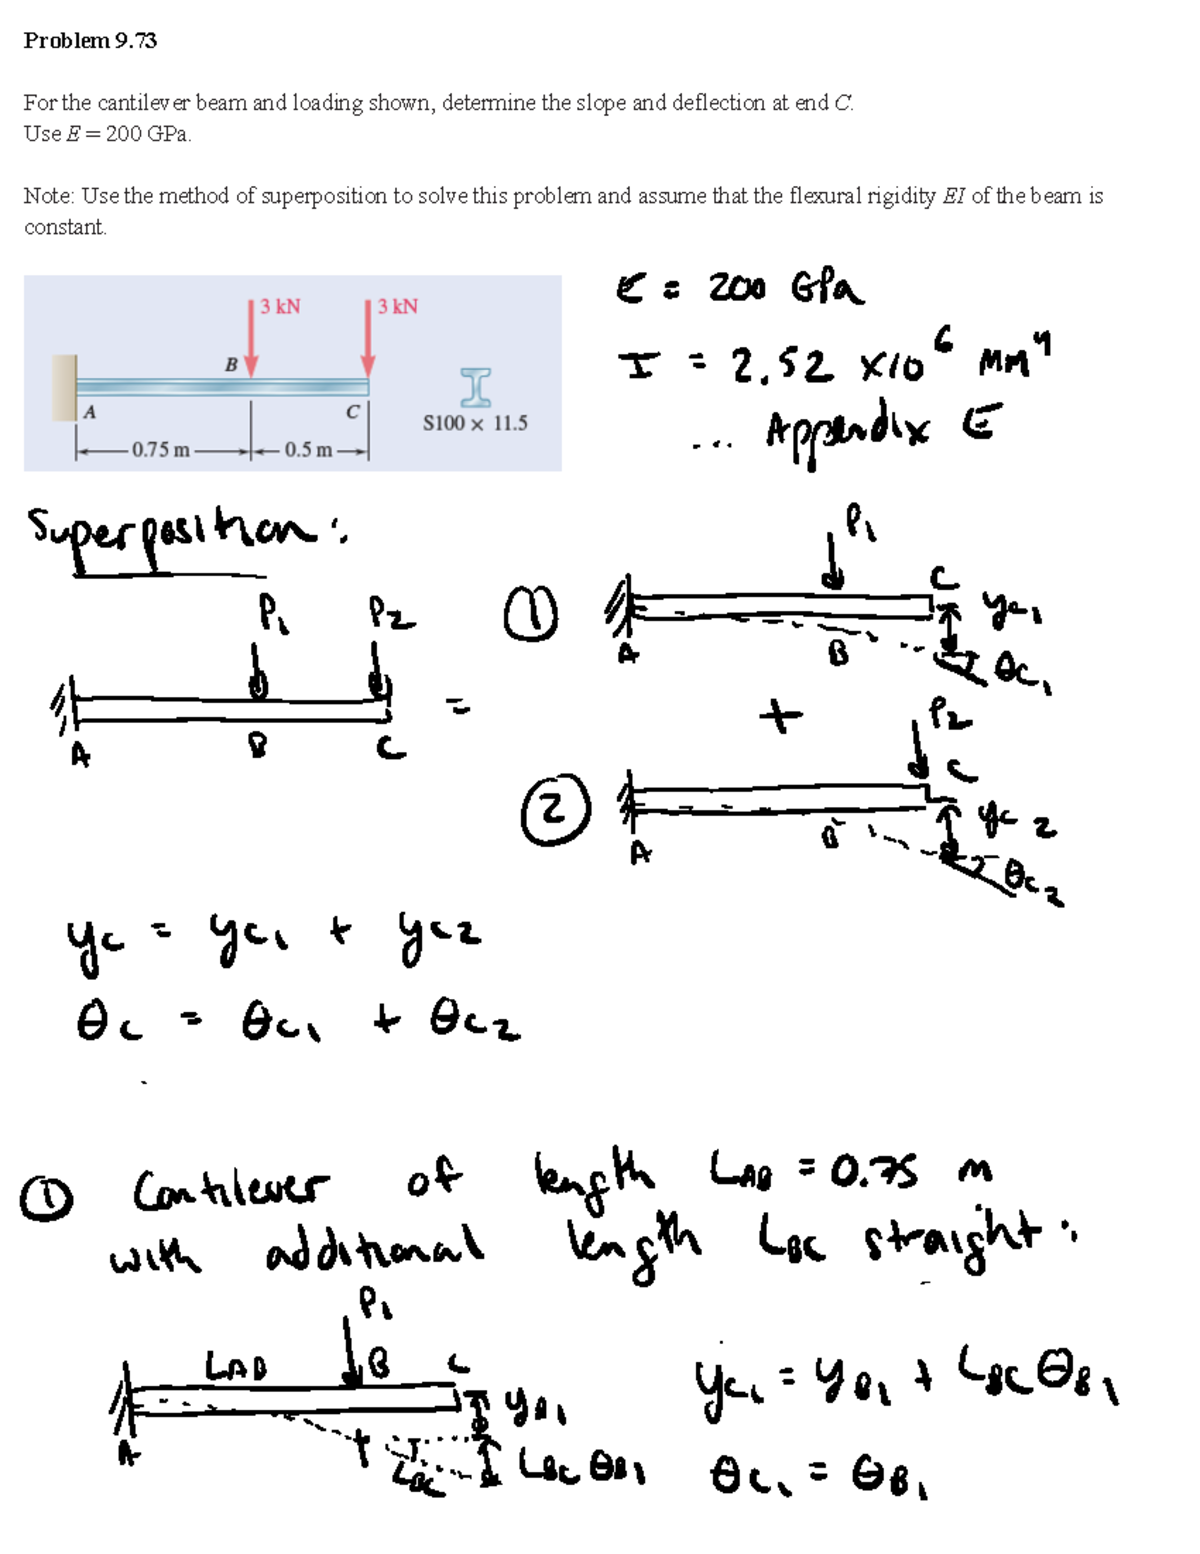 Problem 9.73
For the cantilever beam and loading shown, determine the slope and deflection at end C.
Use E = 200 GPa.
Note: Use the method of superposition to solve this problem and assume that the flexural rigidity EI of the beam is
constant.
3 kN 3 kN
B
A C
S100 × 11.5
0.75 m 0.5 m
E = 200 GPa
I = 2.52 x10⁶ mm⁴
... Appendix E
Superposition:
P₁ P₂
A B C
=
① P₁
C
A B
yc₁
θc₁
+
② P₂
C
A B
yc₂
θc₂
yc = yc₁ + yc₂
θc = θc₁ + θc₂
① Cantilever of length LAB = 0.75 m
with additional length LBC straight:
P₁
LAB B C
A
yB₁
LBC LBC θB₁
yc₁ = yB₁ + LBC θB₁
θc₁ = θB₁